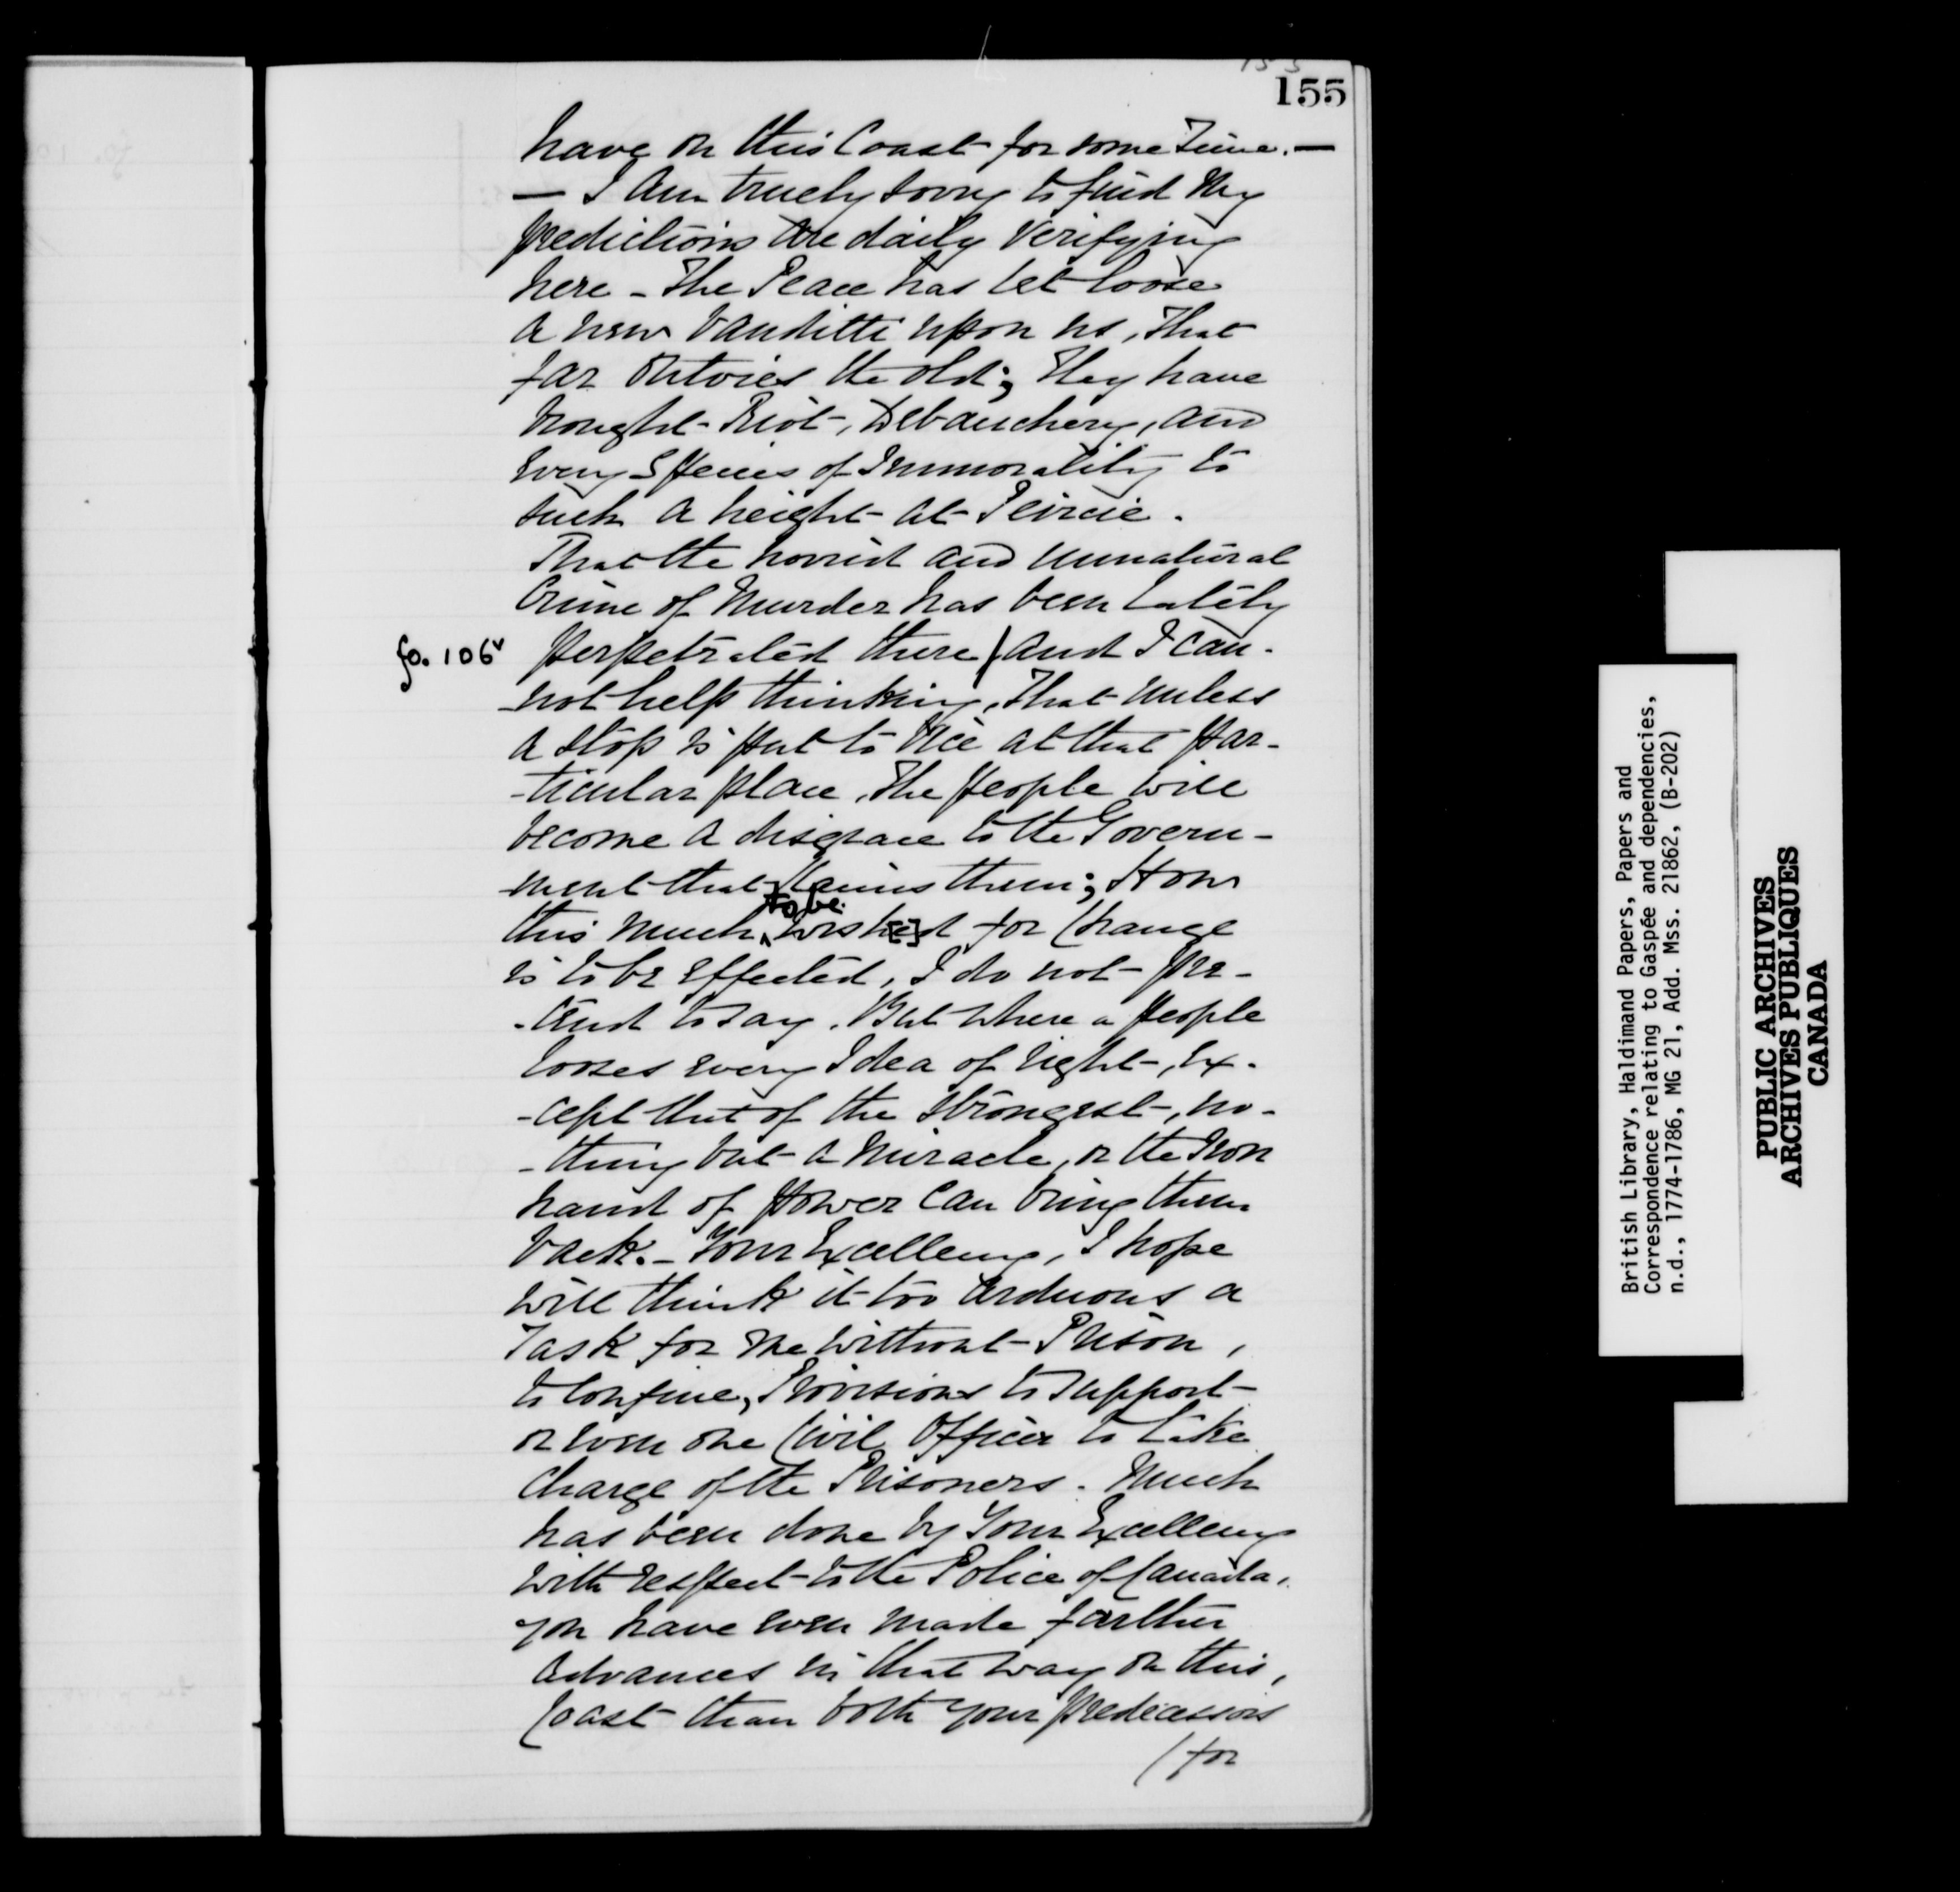 155
have on this Coast for some Time. —
— I am truely sorry to find My
predictions are daily Verifying
here - The Peace has let loose
a new banditti upon us, That
far outvies the old; They have
brought Riot, Debauchery, and
every Species of Immorality to
such a height at Peircie.
That the horrid and unnatural
Crime of Murder has been lately
fo. 106v perpetrated there / and I can-
-not help thinking, That unless
a stop is put to Vice at that par-
-ticular place, The people will
become a disgrace to the Govern-
-ment that Claims them; How
to be
this much wish[e]d for Change
is to be effected, I do not pre-
-tend to say, But where a people
looses every Idea of right, Ex-
-cept that of the strongest, no-
-thing but a Miracle, or the Iron
hand of power can bring them
back. - Your Excellency, I hope
will think it too arduous a
Task for me without Prison,
to Confine, Provisions to support
or even one Civil Officer to take
Charge of the Prisoners. Much
has been done by Your Excellency
with respect to the Police of Canada,
you have even made farther
advances in that way on this,
Coast than both your predecessors
/ for
British Library, Haldimand Papers, Papers and
Correspondence relating to Gaspée and dependencies,
n.d., 1774-1786, MG 21, Add. Mss. 21862, (B-202)
PUBLIC ARCHIVES
ARCHIVES PUBLIQUES
CANADA